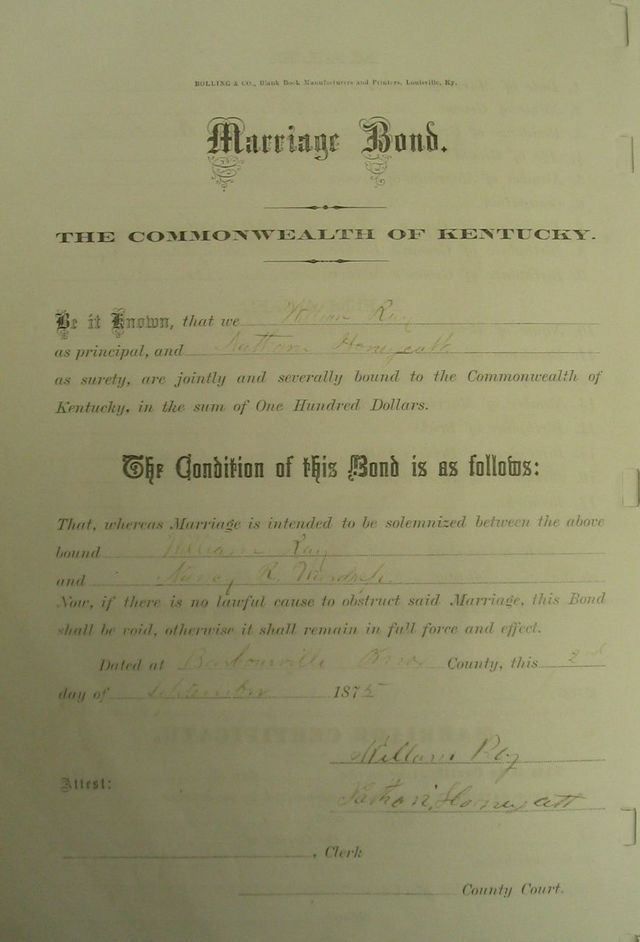 BOLLING & CO., Blank Book Manufacturers and Printers, Louisville, Ky.
Marriage Bond.
THE COMMONWEALTH OF KENTUCKY.
Be it Known, that we William Ray
as principal, and Nathan Honeycutt
as surety, are jointly and severally bound to the Commonwealth of
Kentucky, in the sum of One Hundred Dollars.
The Condition of this Bond is as follows:
That, whereas Marriage is intended to be solemnized between the above
bound William Ray
and Nancy R.
Now, if there is no lawful cause to obstruct said Marriage, this Bond
shall be void, otherwise it shall remain in full force and effect.
Dated at Barbourville Knox County, this 2nd
day of September 1875
William Ray
Attest:
Nathan Honeycutt
, Clerk
County Court.